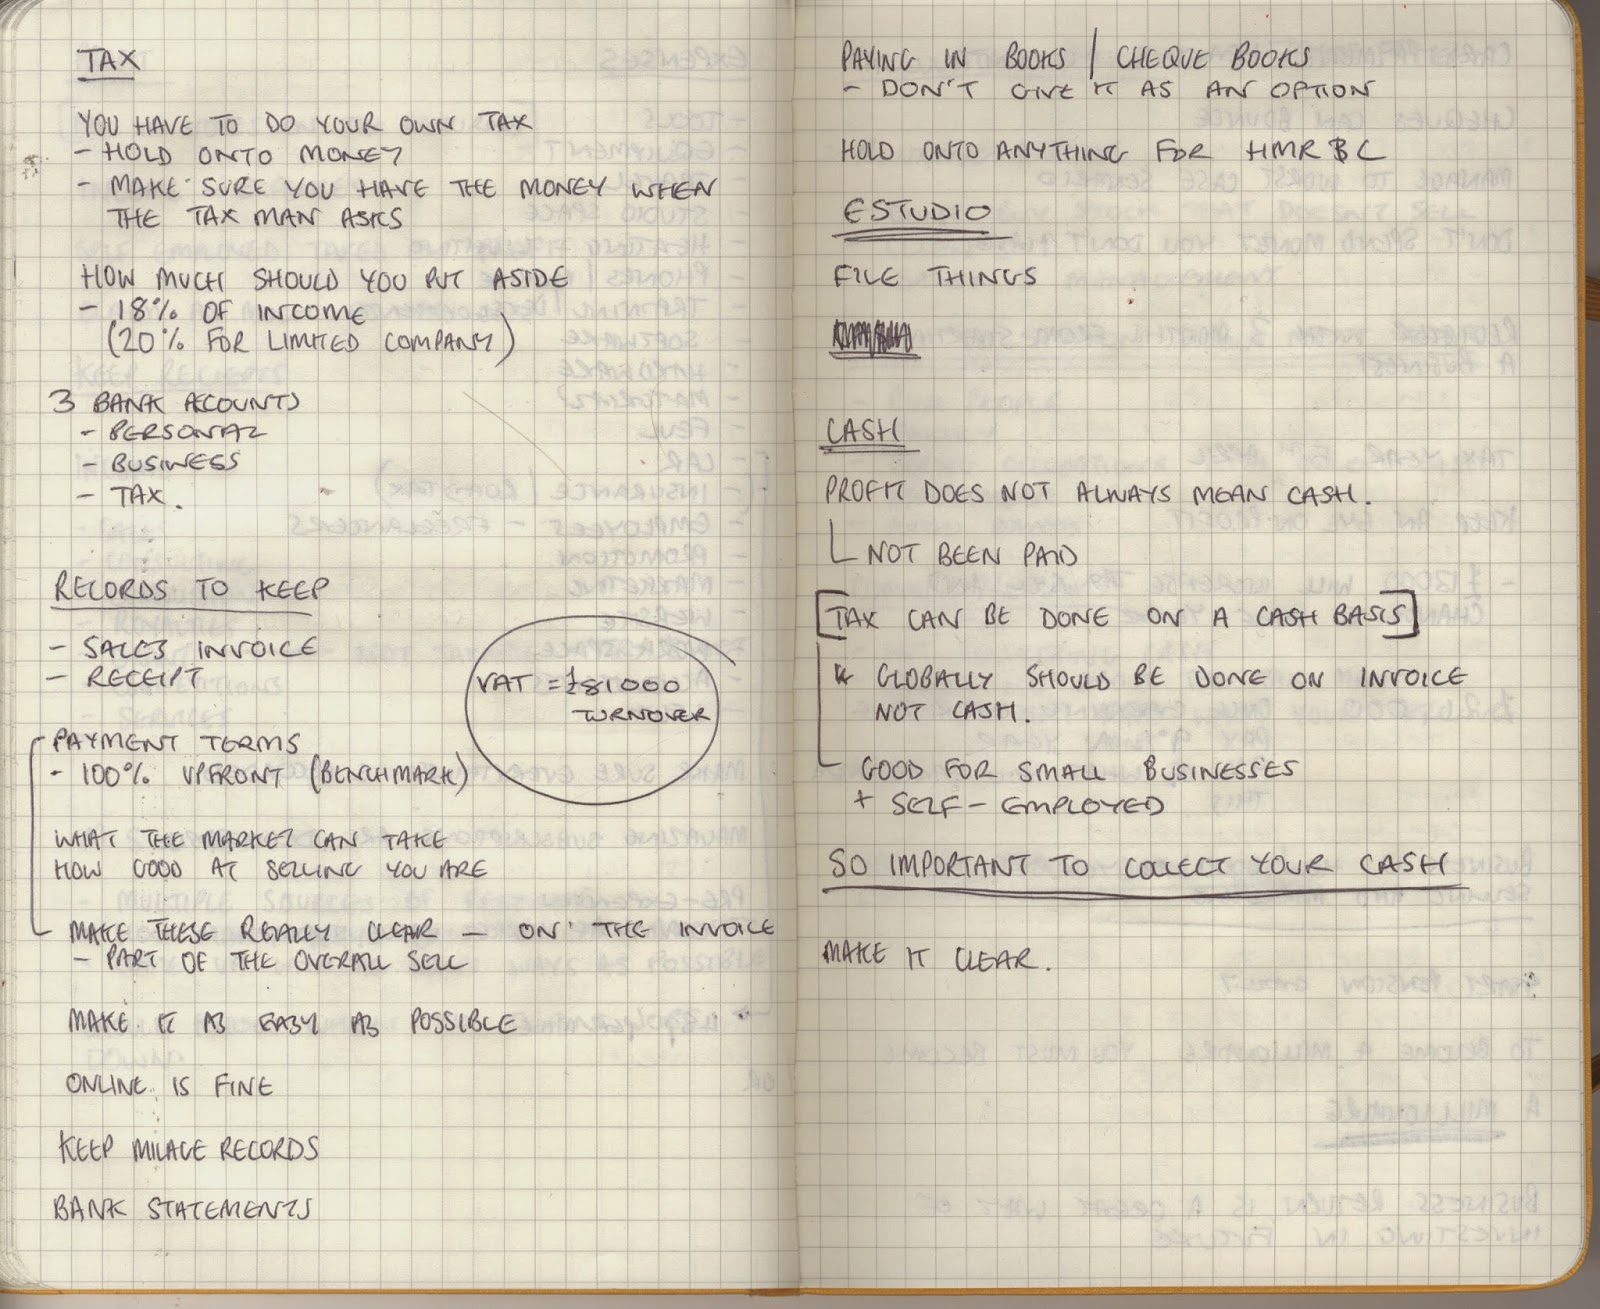 TAX
YOU HAVE TO DO YOUR OWN TAX
- HOLD ONTO MONEY
- MAKE SURE YOU HAVE THE MONEY WHEN
THE TAX MAN ASKS
HOW MUCH SHOULD YOU PUT ASIDE
- 18% OF INCOME
(20% FOR LIMITED COMPANY)
3 BANK ACCOUNTS
- PERSONAL
- BUSINESS
- TAX.
RECORDS TO KEEP
- SALES INVOICE
- RECEIPT
VAT = £81000
TURNOVER
PAYMENT TERMS
- 100% UPFRONT (BENCHMARK)
WHAT THE MARKET CAN TAKE
HOW GOOD AT SELLING YOU ARE
MAKE THESE REALLY CLEAR - ON THE INVOICE
- PART OF THE OVERALL SELL
MAKE IT AS EASY AS POSSIBLE
ONLINE IS FINE
KEEP MILAGE RECORDS
BANK STATEMENTS
PAYING IN BOOKS / CHEQUE BOOKS
- DON'T GIVE IT AS AN OPTION
HOLD ONTO ANYTHING FOR HMR&C
ESTUDIO
FILE THINGS
CASH
PROFIT DOES NOT ALWAYS MEAN CASH.
NOT BEEN PAID
[TAX CAN BE DONE ON A CASH BASIS]
* GLOBALLY SHOULD BE DONE ON INVOICE
NOT CASH.
GOOD FOR SMALL BUSINESSES
+ SELF-EMPLOYED
SO IMPORTANT TO COLLECT YOUR CASH
MAKE IT CLEAR.